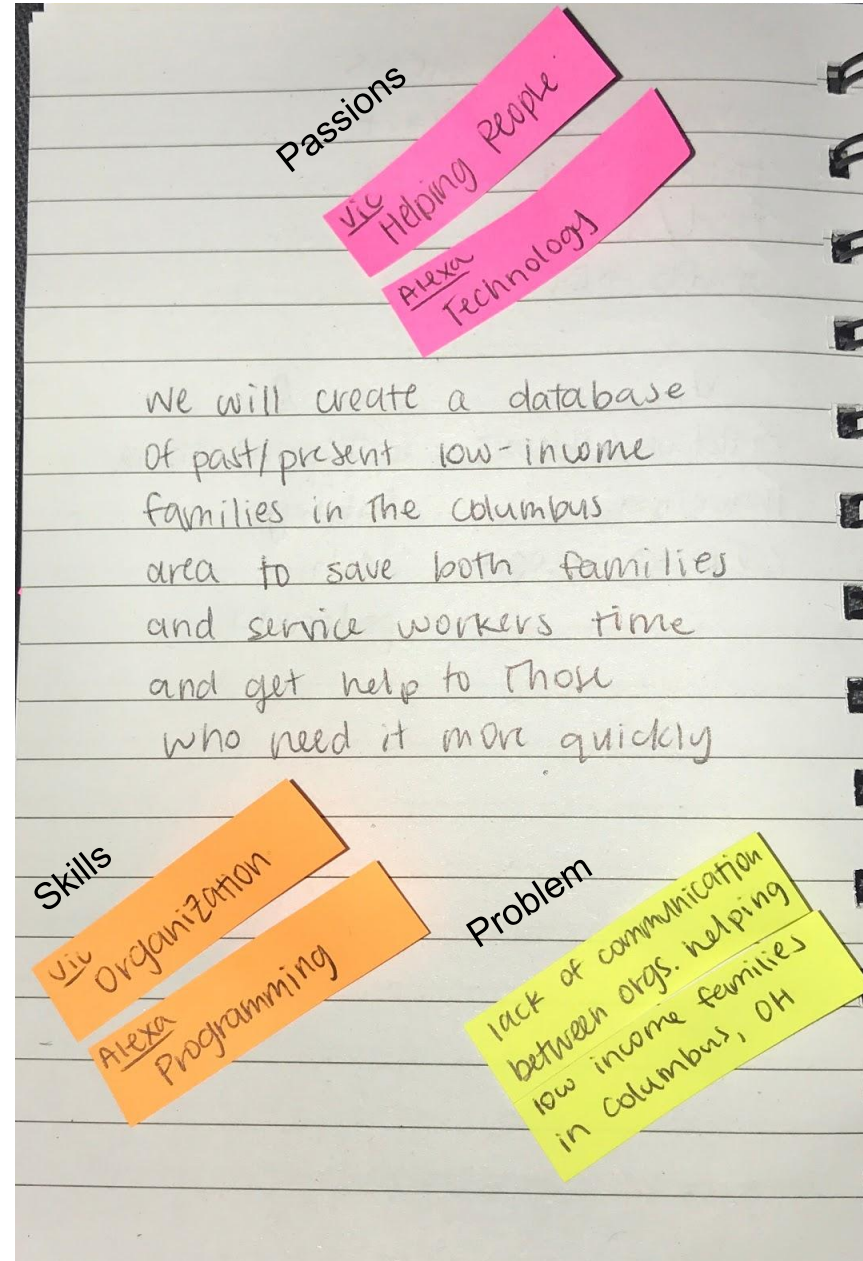 Passions
Vic
Helping People
Alexa
Technology
We will create a database
of past/present low-income
families in the Columbus
area to save both families
and service workers time
and get help to those
who need it more quickly
Skills
Vic
Organization
Alexa
Programming
Problem
lack of communication
between orgs. helping
low income families
in Columbus, OH